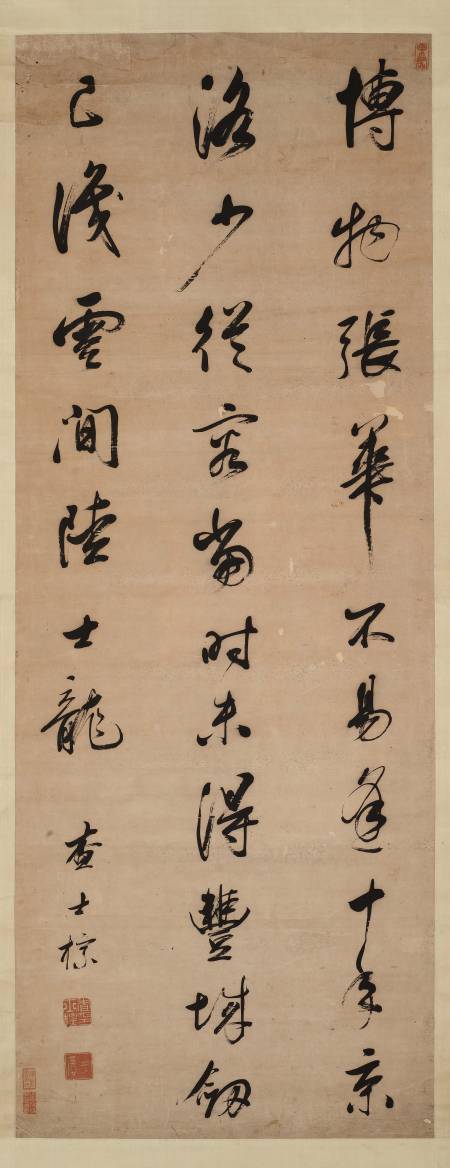 博物張華不易逢十年京
洛少從容當時未得豐城劍
已識雲間陸士龍 查士標